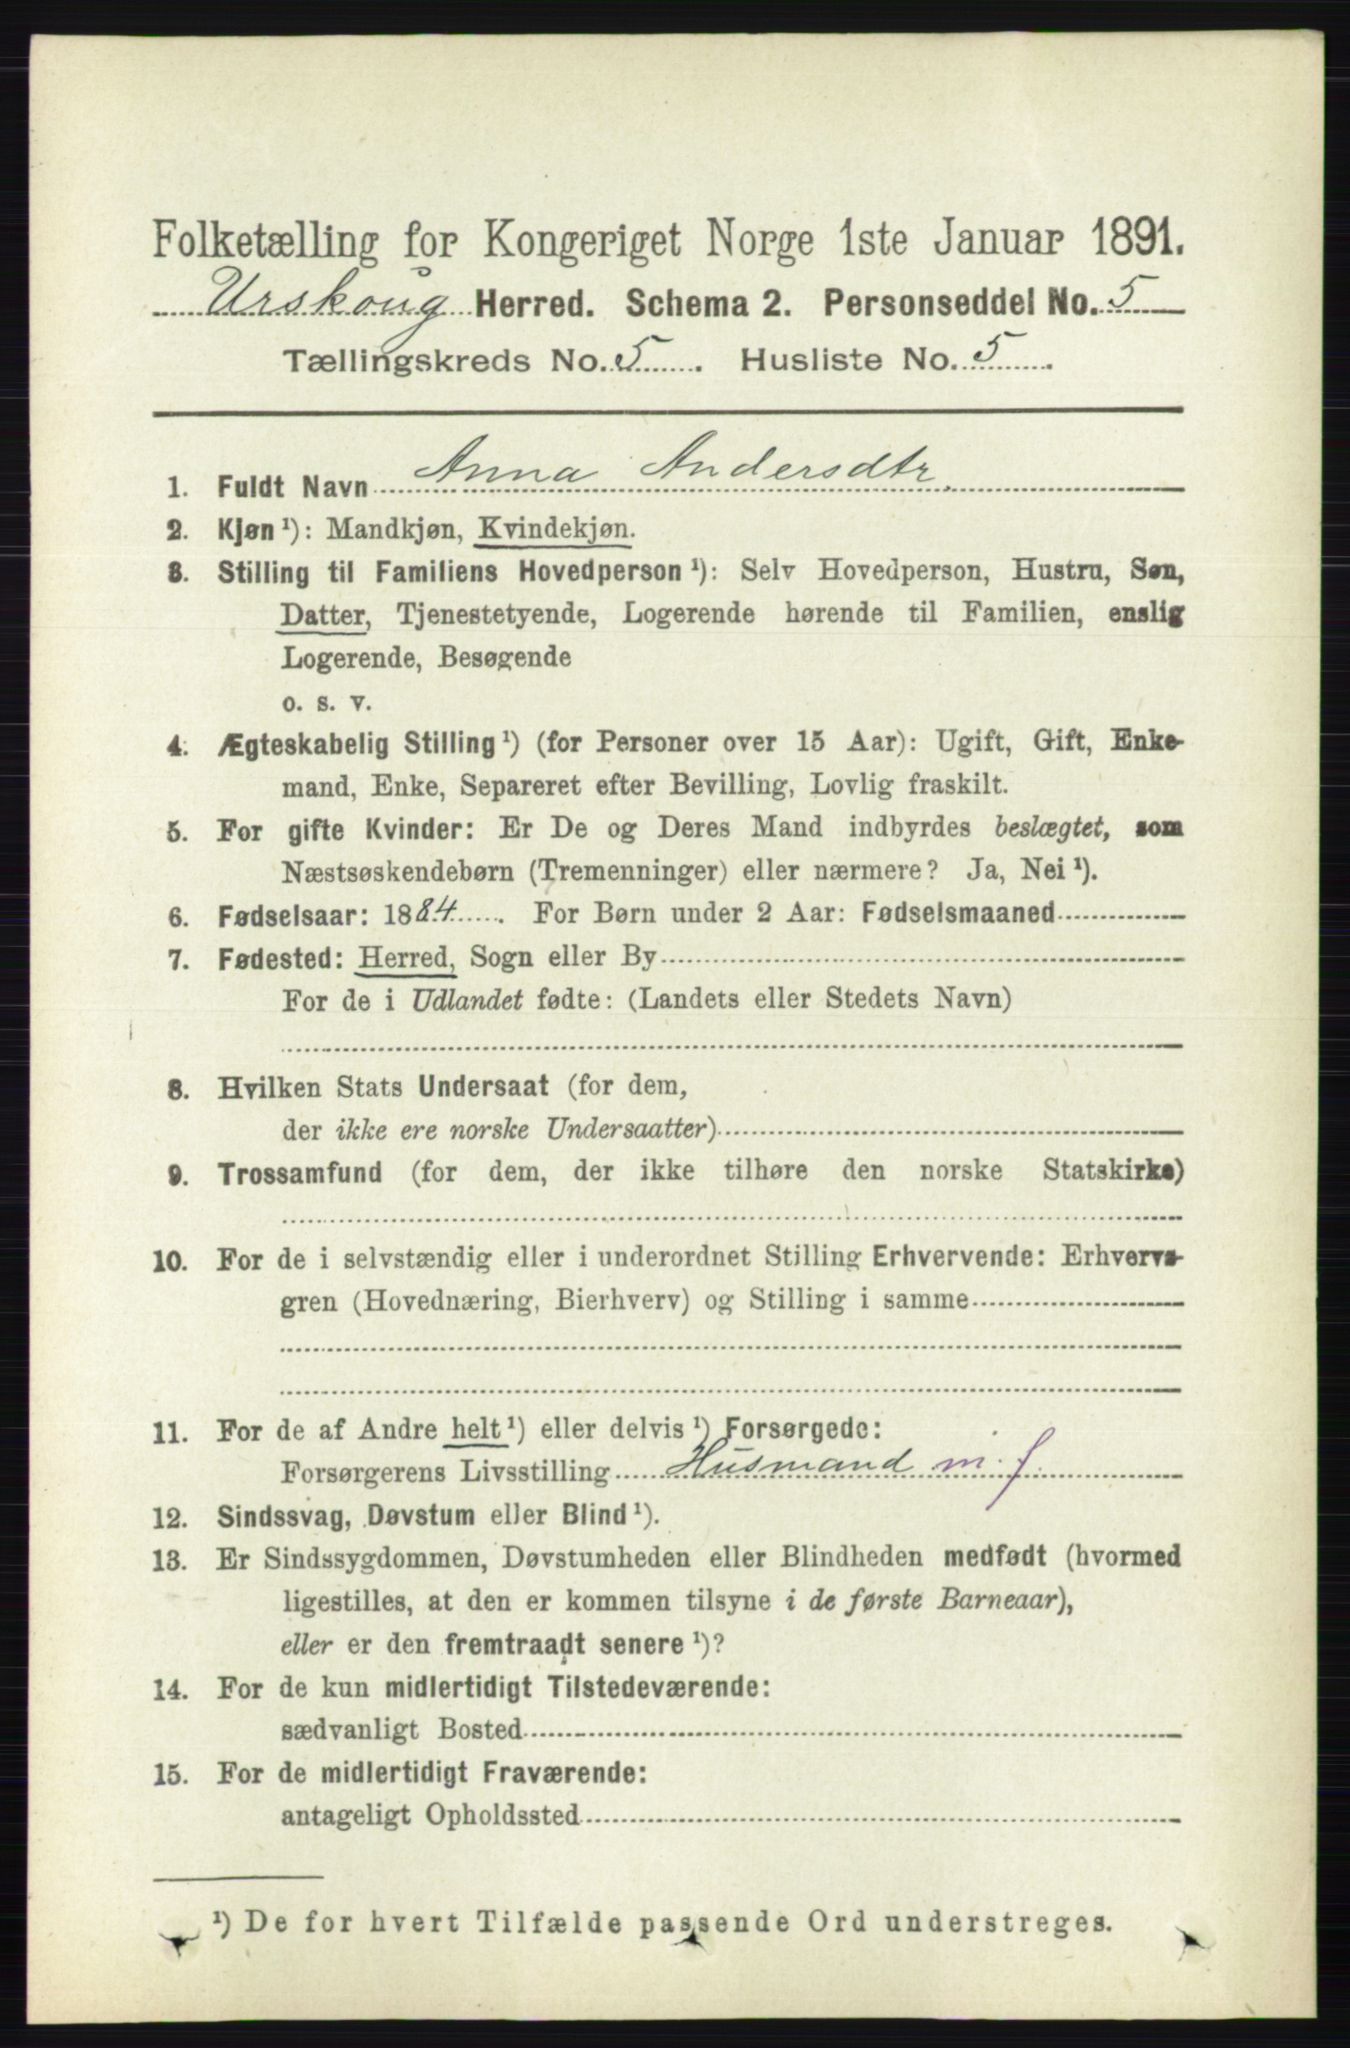 Folketælling for Kongeriget Norge 1ste Januar 1891.
Urskoug Herred. Schema 2. Personseddel No. 5
Tællingskreds No. 5. Husliste No. 5.
1. Fuldt Navn Anna Andersdtr.
2. Kjøn¹): Mandkjøn, Kvindekjøn.
3. Stilling til Familiens Hovedperson¹): Selv Hovedperson, Hustru, Søn,
Datter, Tjenestetyende, Logerende hørende til Familien, enslig
Logerende, Besøgende
o. s. v.
4. Ægteskabelig Stilling¹) (for Personer over 15 Aar): Ugift, Gift, Enke-
mand, Enke, Separeret efter Bevilling, Lovlig fraskilt.
5. For gifte Kvinder: Er De og Deres Mand indbyrdes beslægtet, som
Næstsøskendebørn (Tremenninger) eller nærmere? Ja, Nei¹).
6. Fødselsaar: 1884. For Børn under 2 Aar: Fødselsmaaned
7. Fødested: Herred, Sogn eller By
For de i Udlandet fødte: (Landets eller Stedets Navn)
8. Hvilken Stats Undersaat (for dem,
der ikke ere norske Undersaatter)
9. Trossamfund (for dem, der ikke tilhøre den norske Statskirke)
10. For de i selvstændig eller i underordnet Stilling Erhvervende: Erhvervs-
gren (Hovednæring, Bierhverv) og Stilling i samme
11. For de af Andre helt¹) eller delvis¹) Forsørgede:
Forsørgerens Livsstilling Husmand m. j.
12. Sindssvag, Døvstum eller Blind¹).
13. Er Sindssygdommen, Døvstumheden eller Blindheden medfødt (hvormed
ligestilles, at den er kommen tilsyne i de første Barneaar),
eller er den fremtraadt senere¹)?
14. For de kun midlertidigt Tilstedeværende:
sædvanligt Bosted
15. For de midlertidigt Fraværende:
antageligt Opholdssted
¹) De for hvert Tilfælde passende Ord understreges.